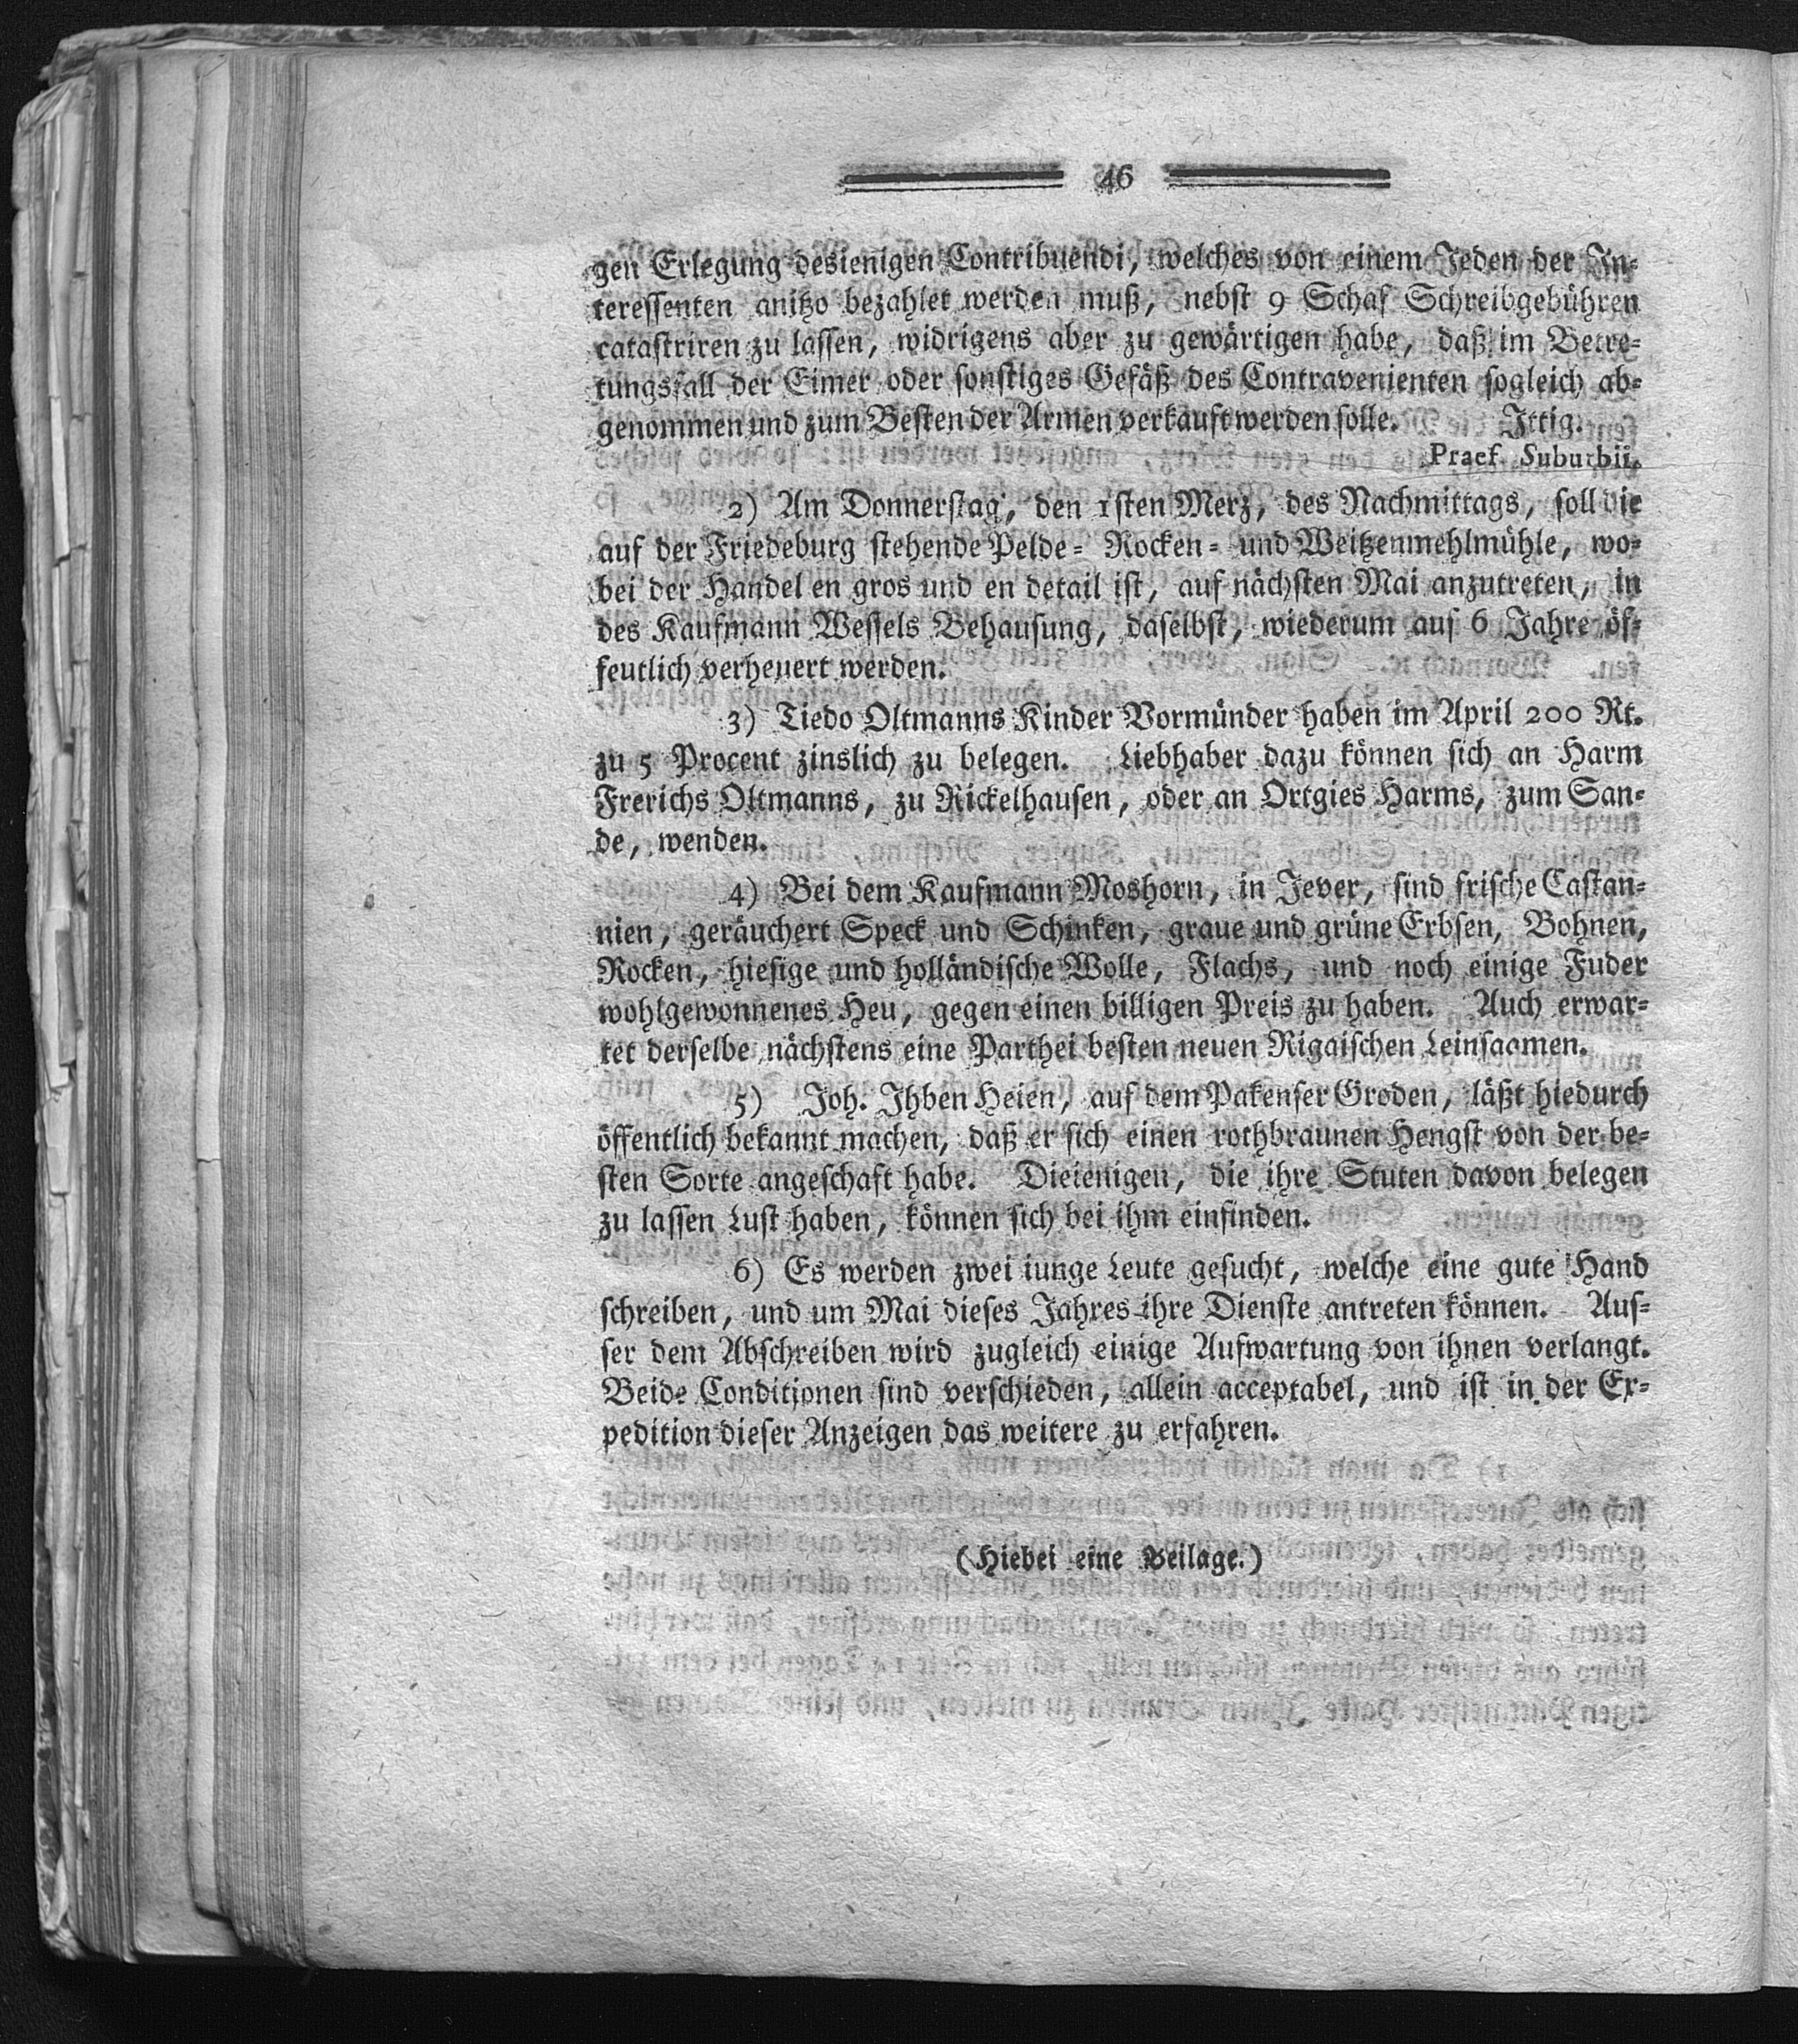 46
gen Erlegung desienigen Contribuendi, welches von einem Jeden der In-
teressenten anitzo bezahlet werden muß, nebst 9 Schaf Schreibgebühren
catastriren zu lassen, widrigens aber zu gewärtigen habe, daß im Betre-
tungsfall der Eimer oder sonstiges Gefäß des Contravenienten sogleich ab-
genommen und zum Besten der Armen verkauft werden solle. Ittig.
Praef. Suburbii.
2) Am Donnerstag, den 1sten Merz, des Nachmittags, soll die
auf der Friedeburg stehende Pelde- Rocken- und Weitzenmehlmühle, wo-
bei der Handel en gros und en detail ist, auf nächsten Mai anzutreten, in
des Kaufmann Wessels Behausung, daselbst, wiederum auf 6 Jahre öf-
feutlich verheuert werden.
3) Tiedo Oltmanns Kinder Vormünder haben im April 200 Rt.
zu 5 Procent zinslich zu belegen. Liebhaber dazu können sich an Harm
Frerichs Oltmanns, zu Rickelhausen, oder an Ortgies Harms, zum San-
de, wenden.
4) Bei dem Kaufmann Moshorn, in Jever, sind frische Castan-
nien, geräuchert Speck und Schinken, graue und grüne Erbsen, Bohnen,
Rocken, hiesige und holländische Wolle, Flachs, und noch einige Fuder
wohlgewonnenes Heu, gegen einen billigen Preis zu haben. Auch erwar-
tet derselbe nächstens eine Parthei besten neuen Rigaischen Leinsaamen.
5) Joh. Ihben Heien, auf dem Pakenser Groden, läßt hiedurch
öffentlich bekannt machen, daß er sich einen rothbraunen Hengst von der be-
sten Sorte angeschaft habe. Dieienigen, die ihre Stuten davon belegen
zu lassen Lust haben, können sich bei ihm einfinden.
6) Es werden zwei iunge Leute gesucht, welche eine gute Hand
schreiben, und um Mai dieses Jahres ihre Dienste antreten können. Aus-
ser dem Abschreiben wird zugleich einige Aufwartung von ihnen verlangt.
Beide Conditionen sind verschieden, allein acceptabel, und ist in der Ex-
pedition dieser Anzeigen das weitere zu erfahren.
(Hiebei eine Beilage.)